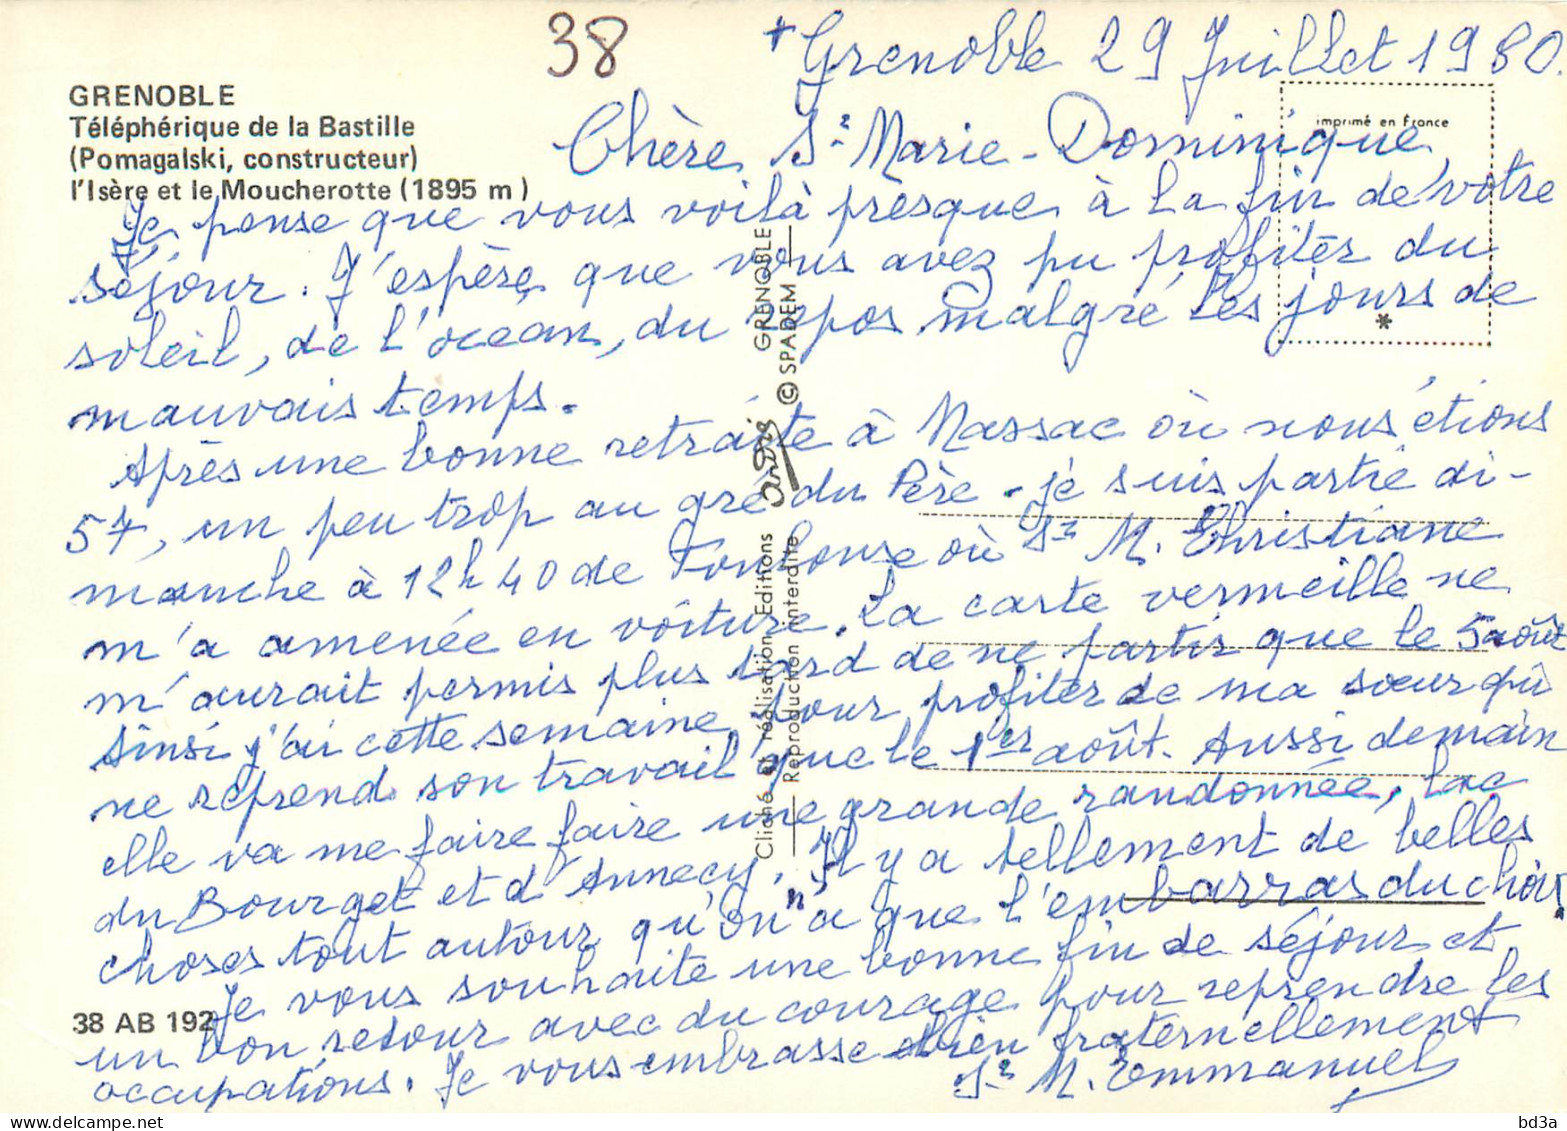 38
+ Grenoble 29 Juillet 1980.
GRENOBLE
Téléphérique de la Bastille
(Pomagalski, constructeur)
l'Isère et le Moucherotte (1895 m)
imprimé en france
Chère Sr Marie-Dominique,
Je pense que vous voilà prèsque à la fin de votre
séjour. J'espère que vous avez pu profiter du
soleil, de l'océan, du repos malgré les jours de
mauvais temps.
Après une bonne retraite à Massac où nous étions
57, un peu trop au gré du Père - je suis partie di-
manche à 12h40 de Toulouse où Sr M. Christiane
m'a amenée en voiture. La carte vermeille ne
m'aurait permis plus tard de ne partir que le 5 août
Ainsi j'ai cette semaine pour profiter de ma sœur qui
ne reprend son travail que le 1er août. Aussi demain
elle va me faire faire une grande randonnée, lac
du Bourget et d'Annecy. Il y a tellement de belles
choses tout autour qu'on n'a que l'embarras du choix!
Je vous souhaite une bonne fin de séjour et
un bon retour avec du courage pour reprendre les
occupations. Je vous embrasse bien fraternellement
Sr M. Emmanuel
38 AB 192
Cliché et réalisation Editions André GRENOBLE
Reproduction interdite © SPADEM
*
bd3a